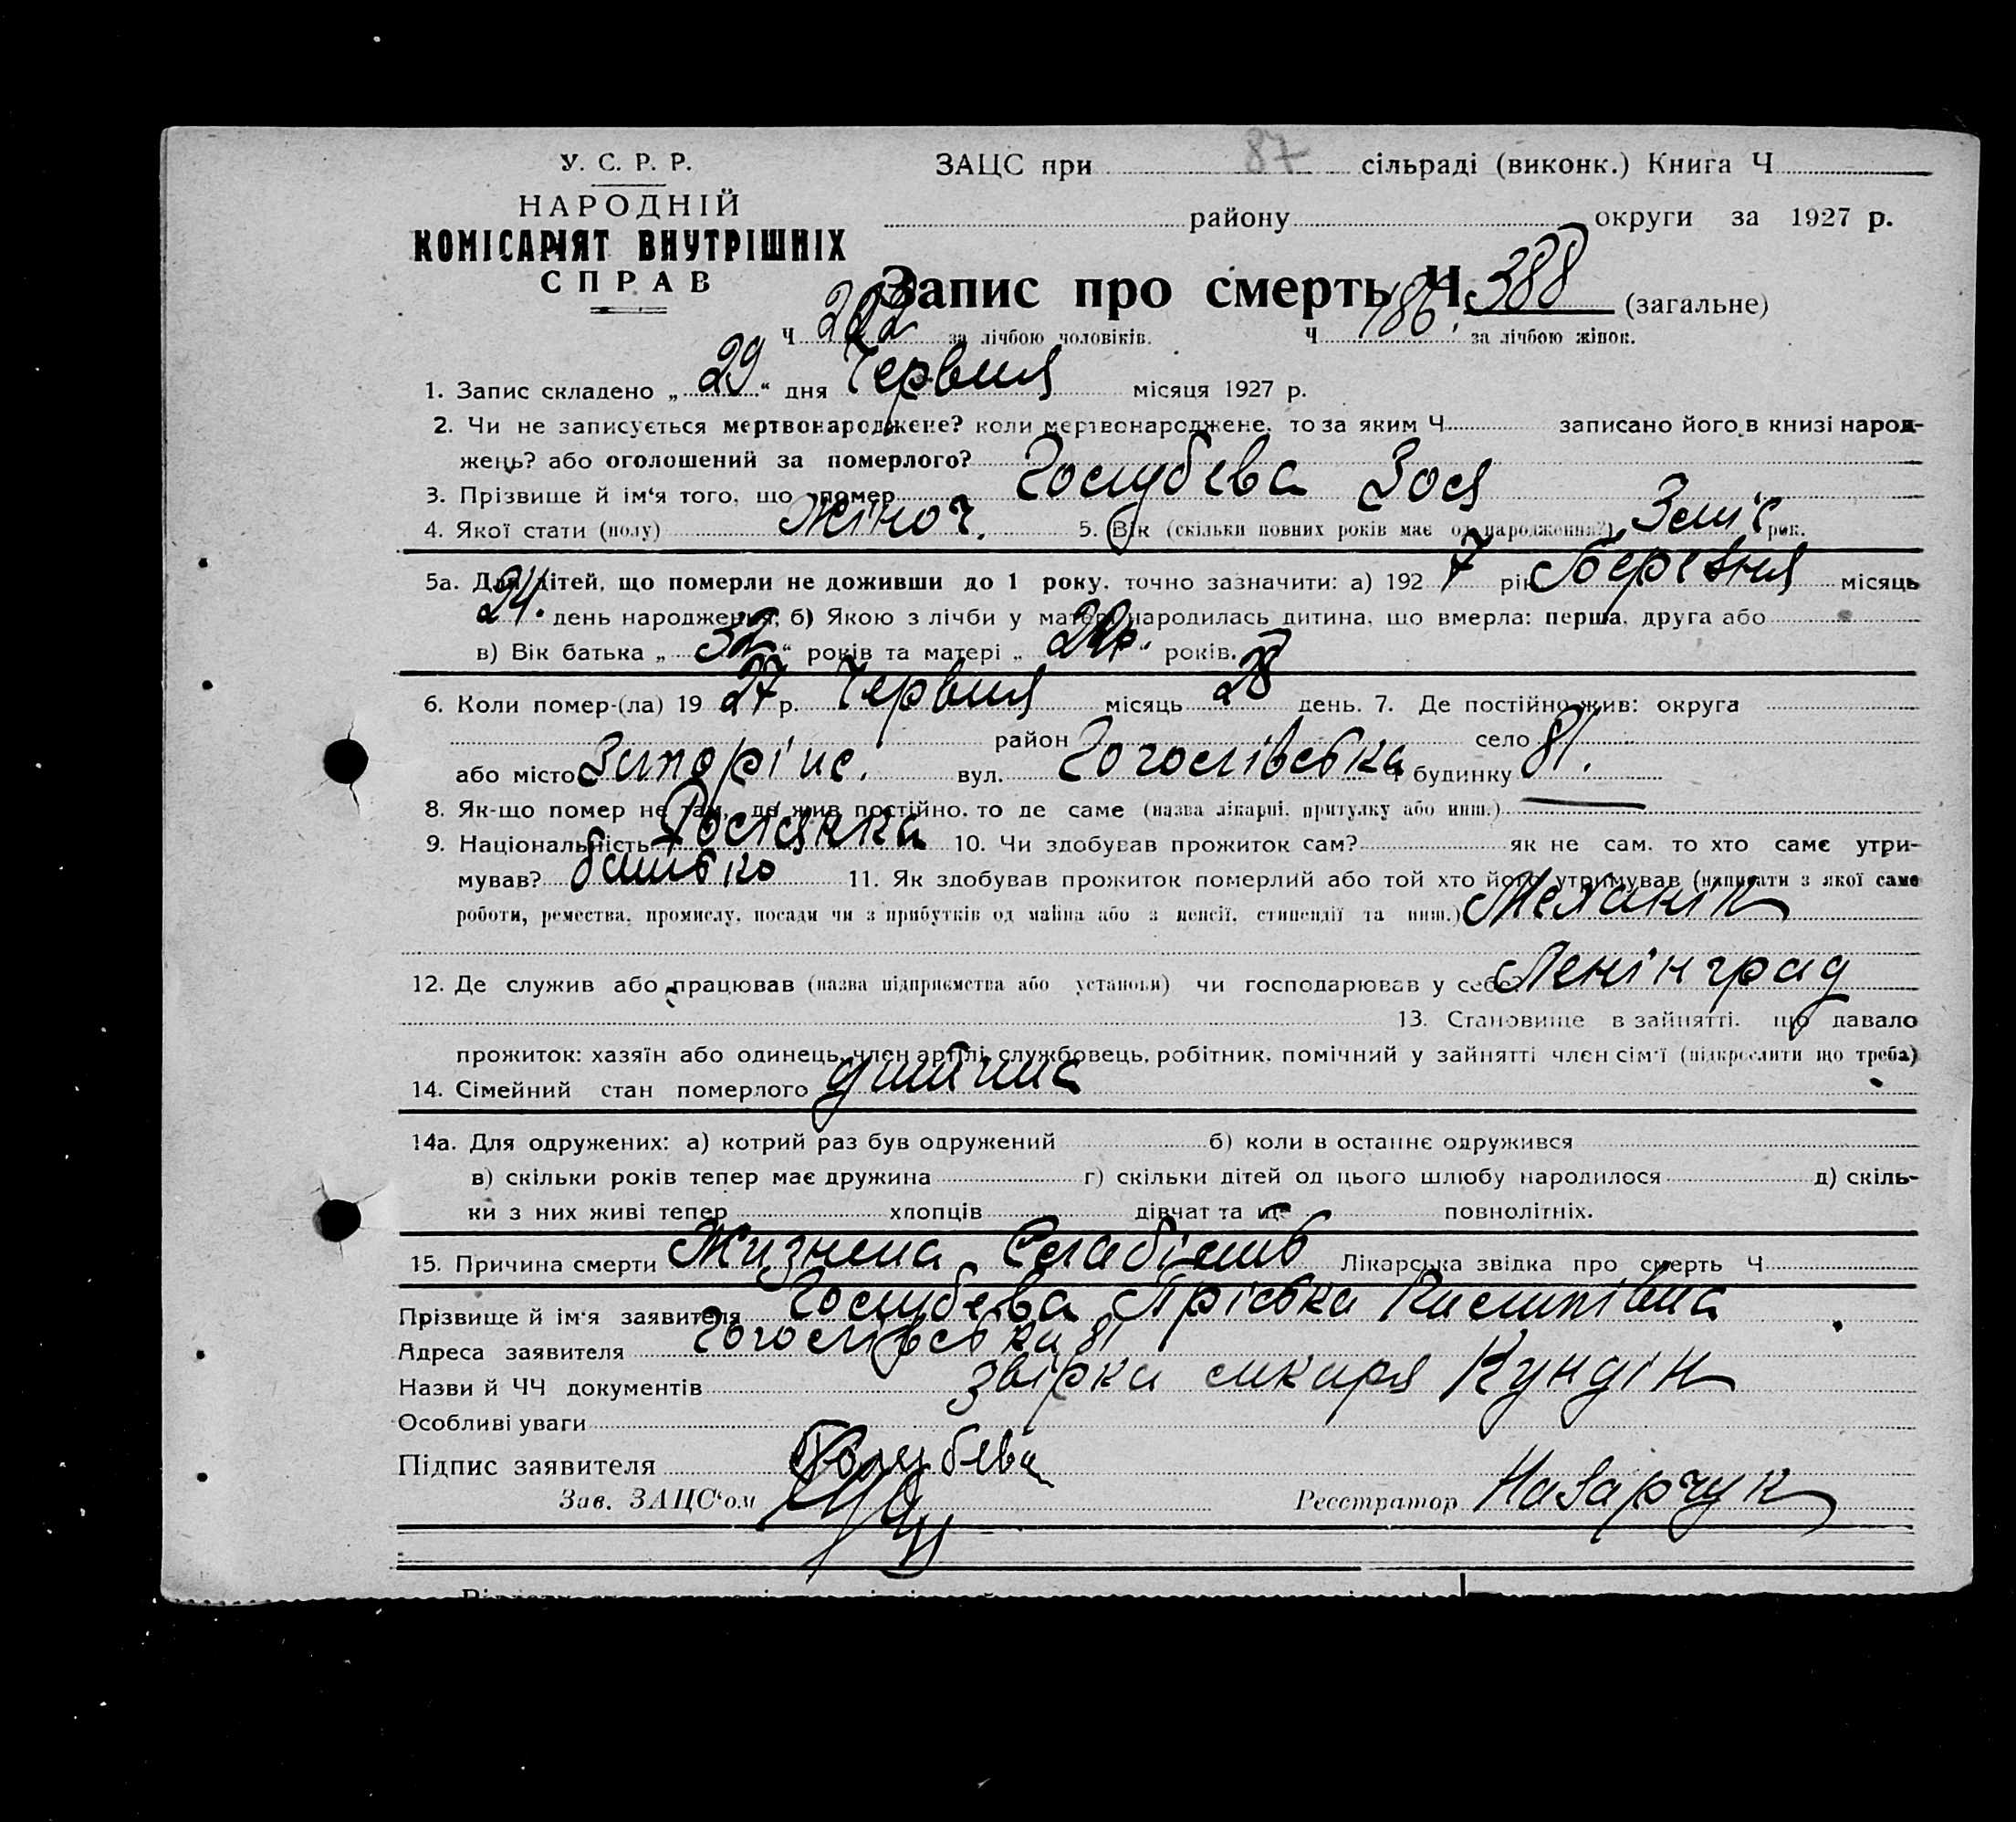 87
У. С. Р. Р.
ЗАЦС при сільраді (виконк.) Книга Ч
НАРОДНІЙ
району округи за 1927 р.
КОМІСАРІЯТ ВНУТРІШНІХ
СПРАВ
Запис про смерть Ч 388 (загальне)
Ч 202 за лічбою чоловіків. Ч 186 за лічбою жінок.
1. Запис складено „ 29 “ дня Червня місяця 1927 р.
2. Чи не записується мертвонароджене? коли мертвонароджене, то за яким Ч записано його в книзі народ-
жень? або оголошений за померлого?
3. Прізвище й ім‘я того, що помер Голубєва Зоя
4. Якої стати (полу) жіноч. 5. Вік (скільки повних років має од народження?) 3 міс рок.
5а. Для дітей, що померли не доживши до 1 року, точно зазначити: а) 192 7 рік Березня місяць
24. день народження; б) Якою з лічби у матері народилась дитина, що вмерла: перша, друга або
в) Вік батька „ 32 “ років та матері „ “ років.
6. Коли помер-(ла) 19 27 р. Червня місяць 28 день. 7. Де постійно жив: округа
район село
або місто вул. Гоголівська будинку 81.
8. Як-що помер не там, де жив постійно, то де саме (назва лікарні, притулку або инш.)
9. Національність Росіянка 10. Чи здобував прожиток сам? як не сам, то хто саме утри-
мував? батько 11. Як здобував прожиток померлий або той хто його утримував (написати з якої саме
роботи, ремества, промислу, посади чи з прибутків од майна або з пенсії, стипендії та инш.) Механік
12. Де служив або працював (назва підприємства або установи) чи господарював у себе Ленінград
13. Становище в зайнятті, що давало
прожиток: хазяїн або одинець, член артілі, службовець, робітник, помічний у зайнятті член сім‘ї (підкреслити що треба)
14. Сімейний стан померлого дитина
14а. Для одружених: а) котрий раз був одружений б) коли в останнє одружився
в) скільки років тепер має дружина г) скільки дітей од цього шлюбу народилося д) скіль-
ки з них живі тепер хлопців дівчат та ще повнолітніх.
15. Причина смерти Жизнена Слабість Лікарська звідка про смерть Ч
Прізвище й ім‘я заявителя Голубєва Пріська
Адреса заявителя Гоголівська 81
Назви й ЧЧ документів звірка лікаря Кундін
Особливі уваги
Підпис заявителя Голубева
Зав. ЗАЦС‘ом Реєстратор Назарчук